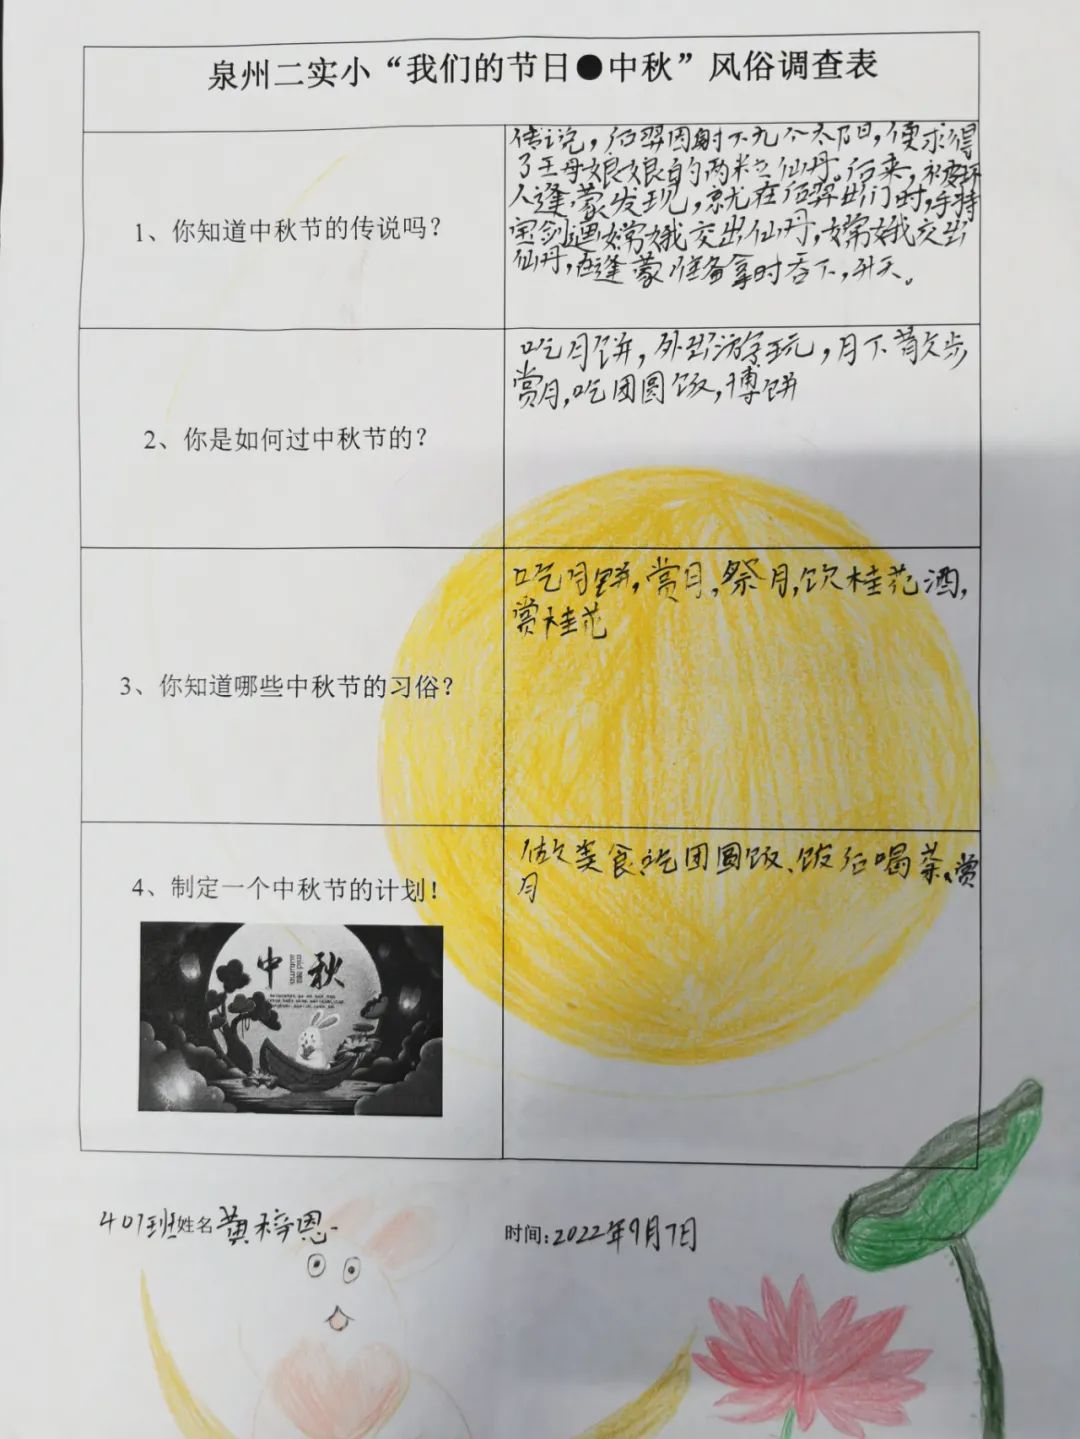 泉州二实小“我们的节日●中秋”风俗调查表
1、你知道中秋节的传说吗？
传说，后羿因射下九个太阳，便求得
了王母娘娘的两粒仙丹。后来，被坏
人逢蒙发现，就在后羿出门时，手持
宝剑逼嫦娥交出仙丹，嫦娥交出
仙丹，在逢蒙准备拿时吞下，升天。
2、你是如何过中秋节的？
吃月饼，外出游玩，月下散步
赏月，吃团圆饭，博饼
3、你知道哪些中秋节的习俗？
吃月饼，赏月，祭月，饮桂花酒，
赏桂花
4、制定一个中秋节的计划！
做美食、吃团圆饭、饭后喝茶、赏
月
中秋
407班姓名黄梓恩
时间：2022年9月7日